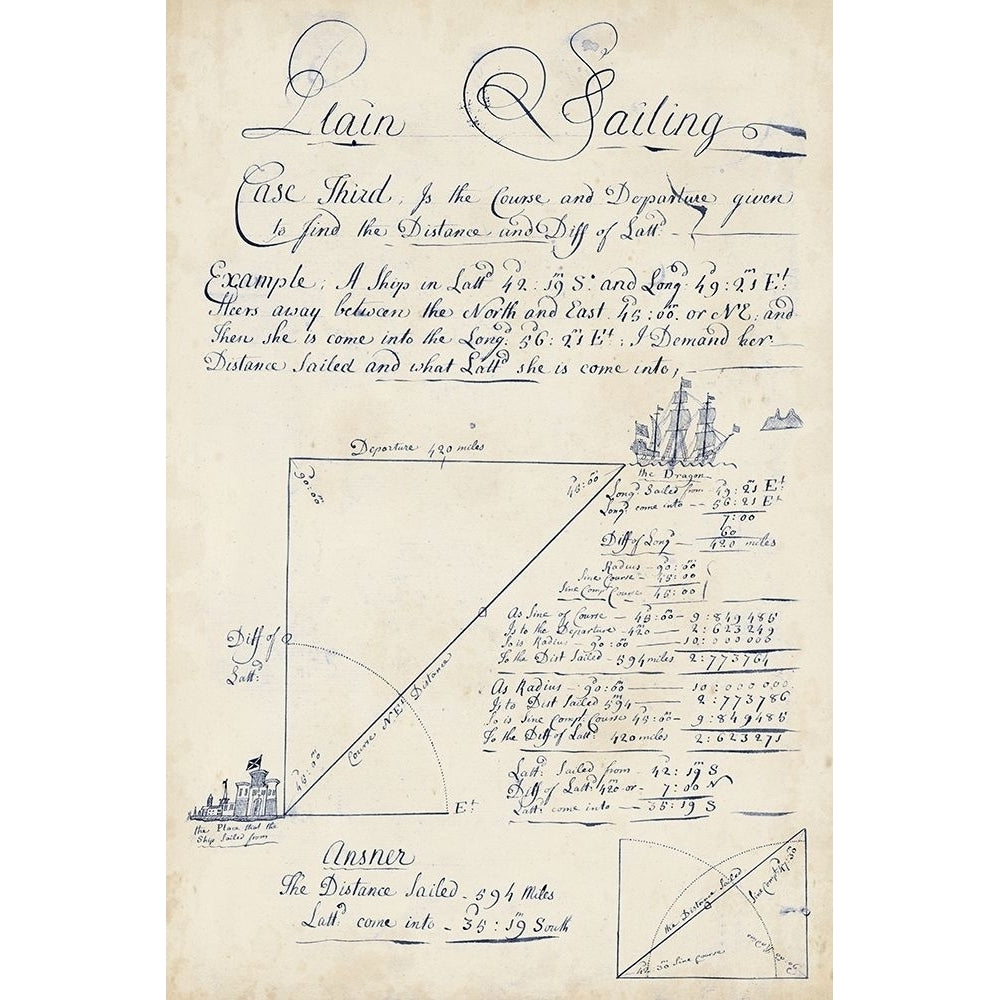 Plain Sailing
Case Third, Is the Course and Departure given
to find the Distance and Diff of Lattd
Example, A Ship in Lattd 42:19 S. and Longd 49:21 Et
Steers away between the North and East 45:00 or NE, and
Then she is come into the Longd 56:21 Et: I Demand her
Distance Sailed and what Lattd she is come into,
Departure 420 miles
90:00
45:00
the Dragon
Longd Sailed from 49:21 Et
Longd come into 56:21 Et
7:00
60
Diff of Longd 420 miles
Radius 90:00
Sine Course 45:00
Sine Comp Course 45:00
As Sine of Course 45:00 9:849485
Is to the Departure 420 2:623249
So is Radius 90:00 10:000000
To the Dist Sailed 594 miles 2:773764
As Radius 90:00 10:000000
Is to Dist Sailed 594 2:773786
So is Sine Compt Course 45:00 9:849485
To the Diff of Latt: 420 miles 2:623271
Diff of
Latt:
Course NE
Distance
45:00
Et
the Place that the
Ship Sailed from
Latt: Sailed from 42:19 S
Diff of Latt: 420 or 7:00 N
Latt: come into 35:19 S
Answer
The Distance Sailed 594 Miles
Lattd come into 35:19 South
the Distance Sailed
Sine Compt 47:30
42:30 Sine course
90:00 Radius